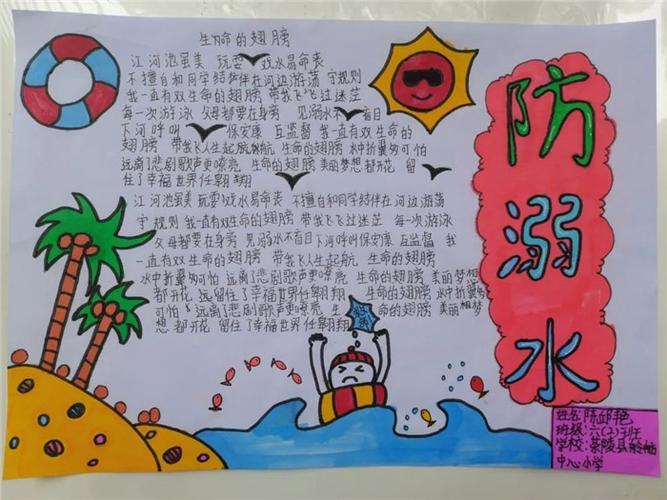 生命的翅膀
江河池虽美 玩耍 戏水易命丧
不擅自和同学结伴在河边游荡 守规则
我一直有双生命的翅膀 带我飞飞过迷茫
每一次游泳 父母都要在身旁 见溺水不盲目
下河呼叫 保安康 互监督 我一直有双生命的
翅膀 带我飞人生起航 生命的翅膀 水中折翼匆可怕
远离了悲剧歌声更嘹亮 生命的翅膀 美丽梦想都开花 留
住了幸福世界任翱翔
江河池虽美 玩耍戏水易命丧 不擅自和同学结伴在河边游荡
守规则 我一直有双生命的翅膀 带我飞飞过迷茫 每一次游泳
父母都要在身旁 见溺水不盲目下河呼叫保安康 互监督 我
一直有双生命的翅膀 带我飞人生起航 生命的翅膀
水中折翼匆可怕 远离了悲剧歌声更嘹亮 生命的翅膀 美丽梦想
都开花 远留住了幸福世界任翱翔 生命的翅膀 水中折翼匆
可怕 远离了悲剧歌声更嘹亮 生命的翅膀 美丽梦
想都开花 留住了幸福世界任翱翔
防溺水
姓名:陈邱艳
班级:六(2)班
学校:茶陵县
中心小学